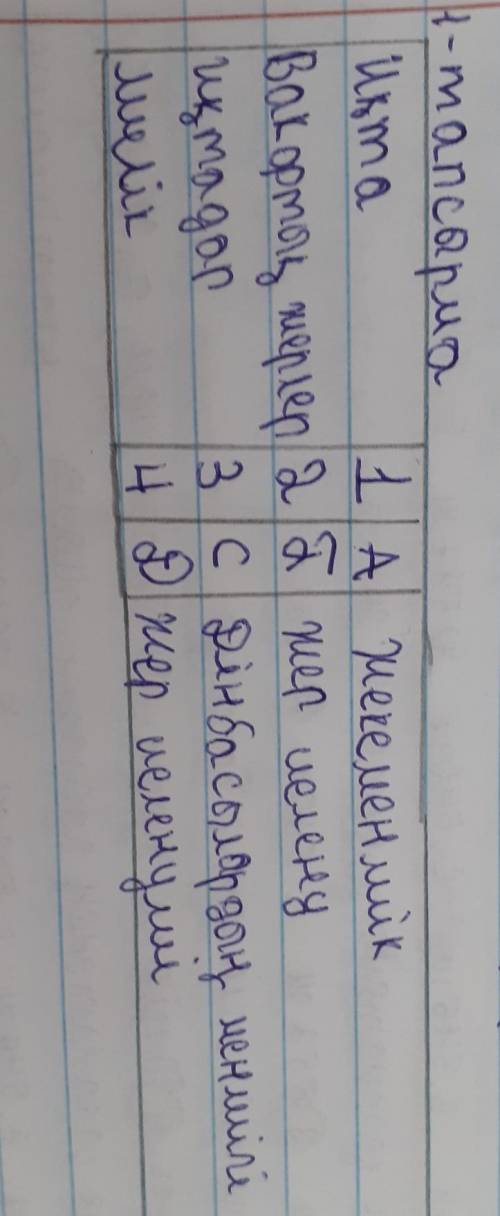 1-тапсырма
Иқта 1 А жекеменмлік
Вакфтық жерлер 2 Б жер иелену
иқтадар 3 С Дінбасылардың менмлігі
мелік 4 Д жер иеленуші